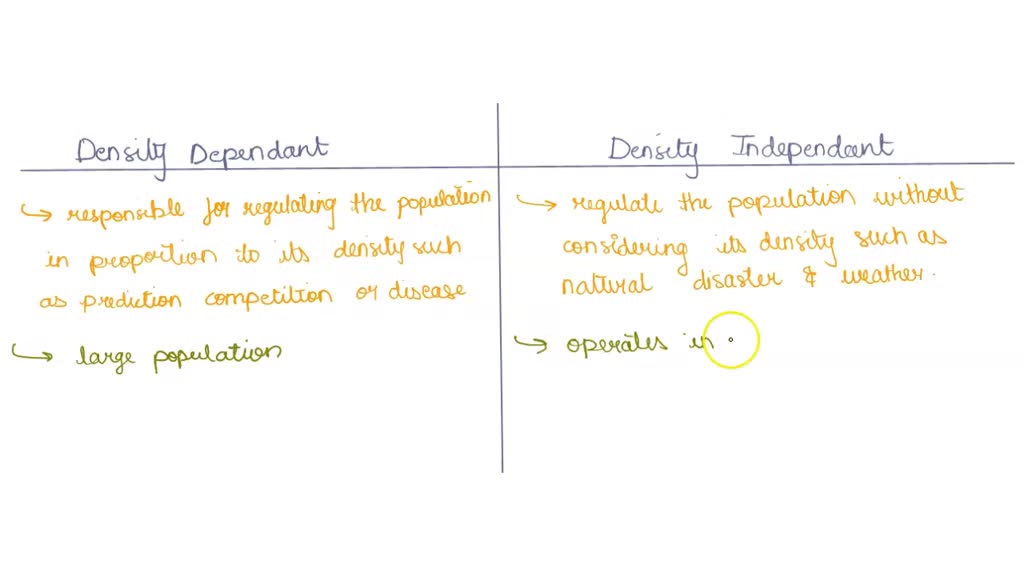 Density Dependant
Density Independant
↪ responsible for regulating the population
in proportion to its density such
as prediction competition or disease
↪ large population
↪ regulate the population without
considering its density such as
natural disaster & weather.
↪ operates in